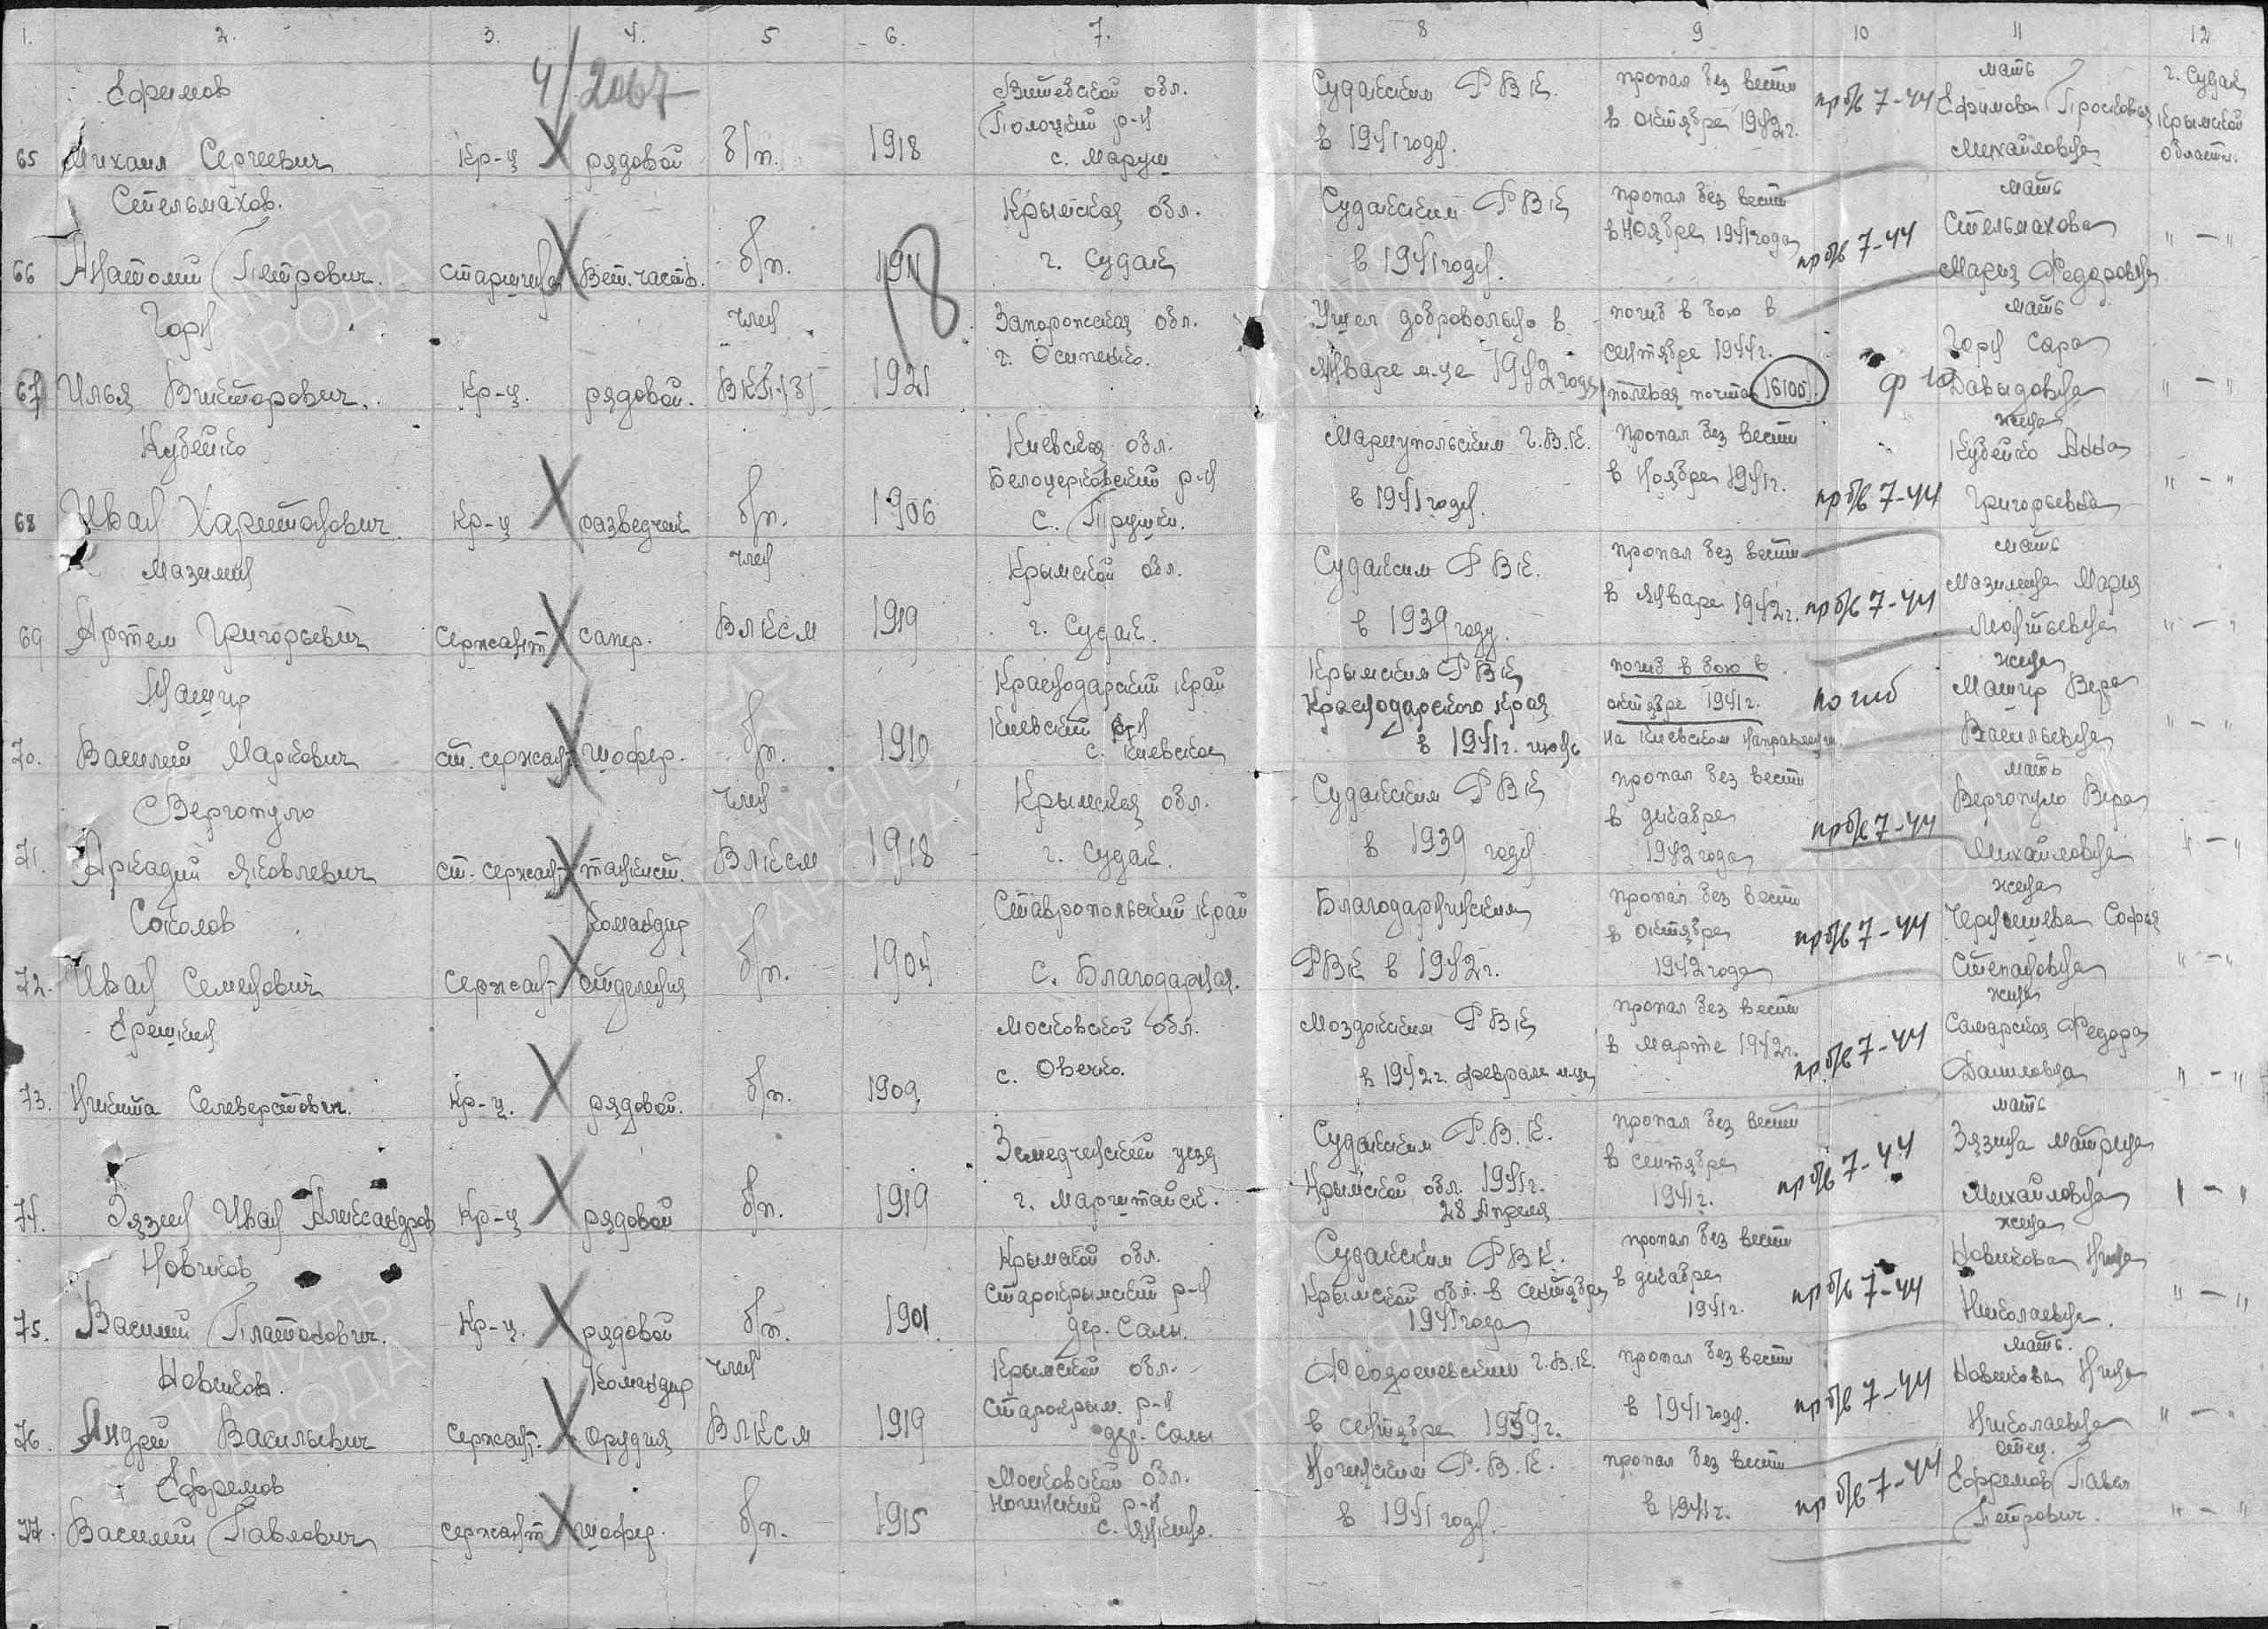 1. 2. 3. 4. 5 6. 7. 8 9 10 11 12
4/2067
Ефимов
65 Михаил Сергеевич Кр-ц рядовой б/п. 1918
Витебской обл.
Полоцкий р-н
с. Маруш
Судакским РВК.
в 1941 году.
пропал без вести
в октябре 1942 г.
пр б/в 7-44
мать
Ефимова Просковья
Михайловна
г. Судак
Крымской
области.
Стельмахов.
66 Анатолий Петрович. старшина Вет. часть. б/п. 1911
18
Крымская обл.
г. Судак
Судакским РВК
в 1941 году.
пропал без вести
в Ноябре 1941 года
пр б/в 7-44
мать
Стельмахова
Мария Федоровна
" - "
Горн
67 Илья Викторович. Кр-ц. рядовой.
член
ВКП/б/ 1921
Запорожская обл.
г. Осипенко.
Ушел добровольно в
Январе м-це 1942 года
погиб в бою в
сентябре 1944 г.
полевая почта 16100
мать
Горн Сара
Давыдовна
" - "
Кубейко
68 Иван Харитонович. Кр-ц разведчик б/п. 1906
Киевская обл.
Белоцерковский р-н
с. Трушки.
Мариупольским Г.В.К.
в 1941 году.
пропал без вести
в Ноябре 1941 г.
пр б/в 7-44
жена
Кубейко Анна
Григорьевна
" - "
Мазилин
69 Артем Григорьевич Сержант сапер.
член
ВЛКСМ 1919
Крымской обл.
г. Судак.
Судакским РВК.
в 1939 году.
пропал без вести
в Январе 1942 г.
пр б/в 7-44
мать
Мазилина Мария
" - "
Машир
70. Василий Маркович ст. сержант шофер. б/п. 1910
Краснодарский край
Киевский р-н
с. Киевское
Крымским РВК
Краснодарского края
в 1941 г. июль
погиб в бою в
октябре 1941 г.
на Киевском направлении.
погиб
жена
Машир Вера
Васильевна
" - "
Вергопуло
71. Аркадий Яковлевич ст. сержант танкист.
член
ВЛКСМ 1918
Крымская обл.
г. Судак.
Судакским РВК
в 1939 году.
пропал без вести
в декабре
1942 года
пр б/в 7-44
мать
Вергопуло Вера
Михайловна
" - "
Соколов
72. Иван Семенович Сержант
Командир
отделения б/п. 1904
Ставропольский край
с. Благодарная.
Благодарнинским
РВК в 1942 г.
пропал без вести
в октябре
1942 года
пр б/в 7-44
жена
Чернышева Софья
Степановна
" - "
Ерешкин
73. Никита Селеверстович. Кр-ц. рядовой. б/п. 1909
Московской обл.
с. Овечко.
Моздокским РВК
в 1942 г. феврале м-це
пропал без вести
в марте 1942 г.
пр б/в 7-44
жена
Самарская Федора
Даниловна
" - "
74. Зязин Иван Александров Кр-ц рядовой б/п. 1919
Земедчинский уезд
Судакским Р.В.К.
Крымской обл. 1941 г.
28 Апреля
пропал без вести
в сентябре
1941 г.
пр б/в 7-44
мать
Зязина Матрена
Михайловна
" - "
Новиков
75. Василий Платонович. Кр-ц. рядовой б/п. 1901
Крымской обл.
Старокрымский р-н
дер. Салы.
Судакским РВК.
Крымской обл. в Сентябре
1941 года
пропал без вести
в декабре
1941 г.
пр б/в 7-44
жена
Новикова Нина
Николаевна.
" - "
Новиков.
76. Андрей Васильевич Сержант.
Командир
орудия
член
ВЛКСМ 1919
Крымской обл.
Старокрым. р-н
дер. Салы
Феодосиевским Г.В.К.
в сентябре 1939 г.
пропал без вести
в 1941 году.
пр б/в 7-44
мать.
Новикова Нина
Николаевна
" - "
Ефремов
77. Василий Павлович Сержант шофер. б/п. 1915
Московской обл.
Ногинский р-н
Ногинским Р.В.К.
в 1941 году.
пропал без вести
в 1941 г.
пр б/в 7-44
отец.
Ефремов Павел
Петрович.
" - "
ПАМЯТЬ
НАРОДА